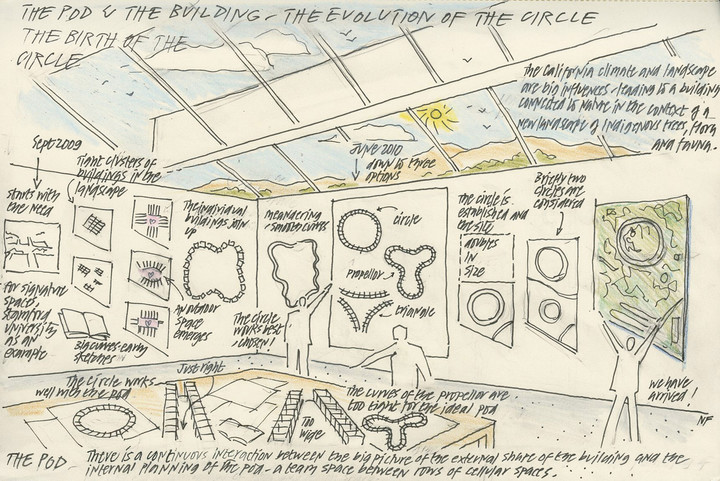 THE POD & THE BUILDING - THE EVOLUTION OF THE CIRCLE
THE BIRTH OF THE
CIRCLE
The California climate and landscape
are big influences - leading to a building
connected to nature in the context of a
new landscape of indigenous trees, flora,
and fauna.
Sept 2009
starts with
the need
for signature
space,
Stanford
University
as an
example
Tight clusters of
buildings in the
landscape
Big curves early
sketches
The individual
buildings join
up
An outdoor
space
emerges
meandering
- smooth curves
The circle
works best
- chosen!
JUNE 2010
down to three
options
circle
propellor
triangle
The circle is
established and
the site
doubles
in
size
Briefly two
circles are
considered
we have
arrived!
NF
The circle works
well with the pod
Just right
Too
wide
The curves of the propellor are
too tight for the ideal pod
THE POD - There is a continuous interaction between the big picture of the external share of the building and the
internal planning of the pod - a team space between rows of cellular spaces.